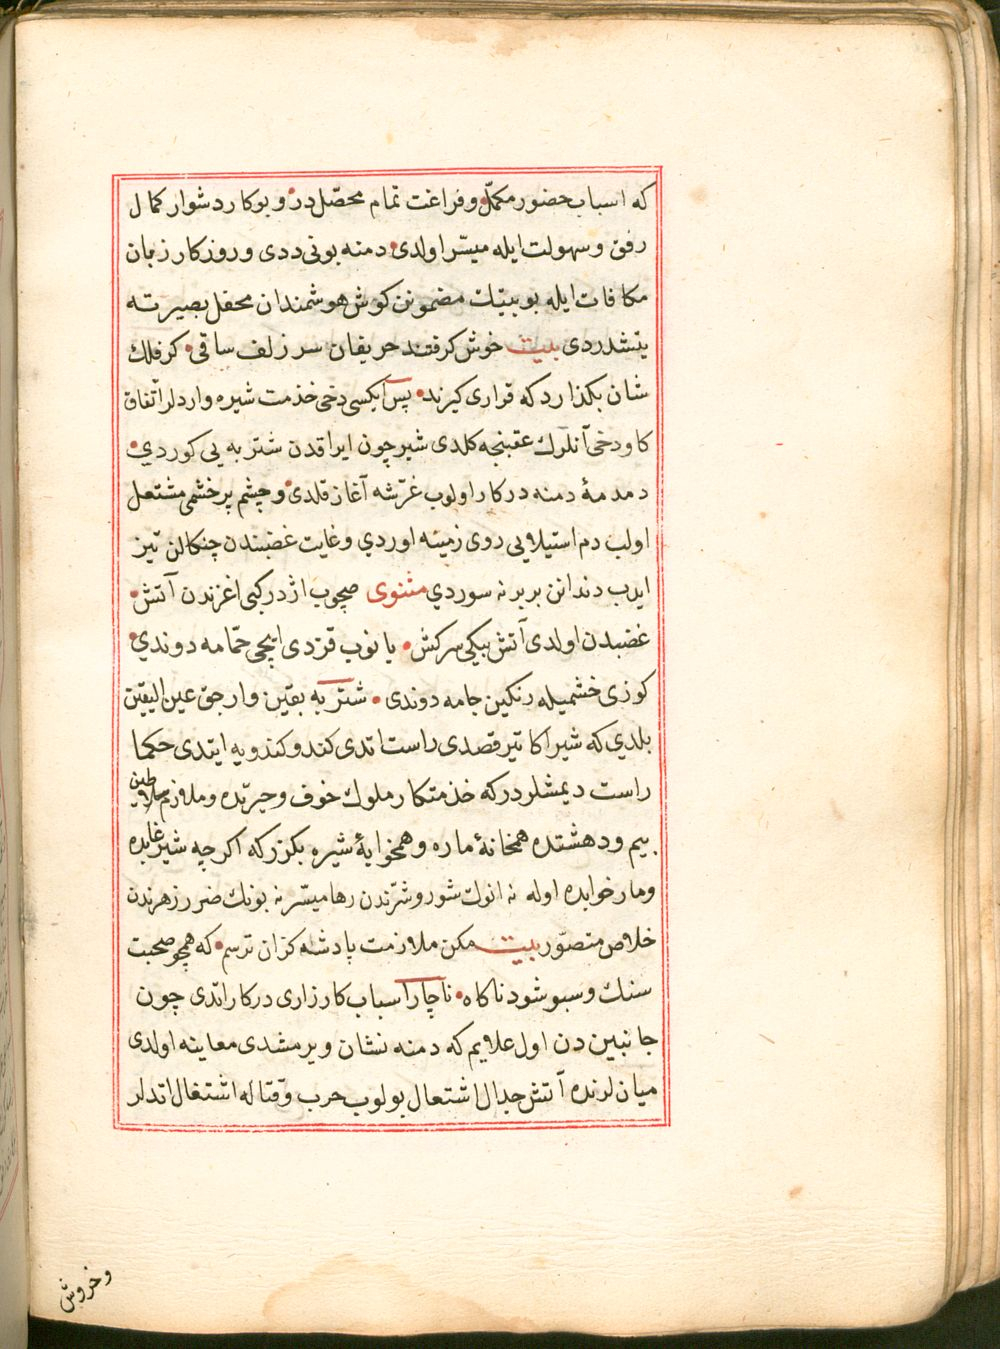 که اسباب حضور مکمّل و فراغت تمام محصّل در و بو کار دشوار کمال
رفق و سهولت ایله میسّر اولدی دمنه بونی ددی و روزکار زبان
مکافات ایله بو بیتك مضمونن کوش هوشمندان محفل بصیرته
یتشدردی بیت خوش کرفتند حریفان سر زلف ساقی کر فلك
شان بکذارد که قراری کیرند پس ایکسی دخی خذمت شیره واردلر اتفاق
کاو دخی آنلرك عقبنجه کلدی شیر چون ایراقدن شتربه یی کوردی
دمدمهٔ دمنه در کار اولوب غرّشه آغاز قلدی و چشم پر خشمی مشتعل
اولب دم استیلایی روی زمینه اوردی و غایت غضبندن چنکالن تیز
ایدب دندانن بربرنه سوردی مثنوی صچوب اژدر کبی اغزندن آتش
غضبدن اولدی آتش بیکی سرکش یانوب قزدی ایچی حمّامه دوندی
کوزی خشمیله رنکین جامه دوندی شتربه بقین وارجق عین الیقین
بلدی که شیر اکا تیر قصدی راست اتدی کندو کندویه ایتدی حکما
راست دیمشلردر که خذمتکار ملوك خوف و حیرتده و ملازم سلاطین
بیم و دهشتده همخانهٔ ماره و همخوابهٔ شیره بکزر که اکرچه شیر غابده
و مار خوابده اوله نه انوك شور و شرّندن رها میسّر نه بونك ضرر زهرندن
خلاص متصوّر بیت مکن ملازمت پادشه کزان ترسم که همچو صحبت
سنك و سبو شود ناکاه ناچار اسباب کارزاری در کار اتدی چون
جانبین دن اول علایم که دمنه نشان ویرمشدی معاینه اولدی
میانلرنده آتش جدال اشتعال بولوب حرب و قتاله اشتغال اتدلر
و خروش